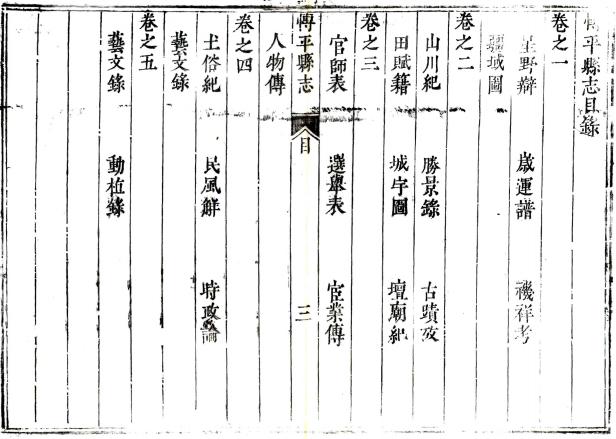 博平縣志目錄
卷之一
星野辯 歲運譜 禨祥考
疆域圖
卷之二
山川紀 勝景錄 古蹟攷
田賦籍 城字圖 壇廟紀
卷之三
官師表 選舉表 宦業傳
博平縣志 目 三
人物傳
卷之四
土俗紀 民風解 時政論
藝文錄
卷之五
藝文錄 動植錄